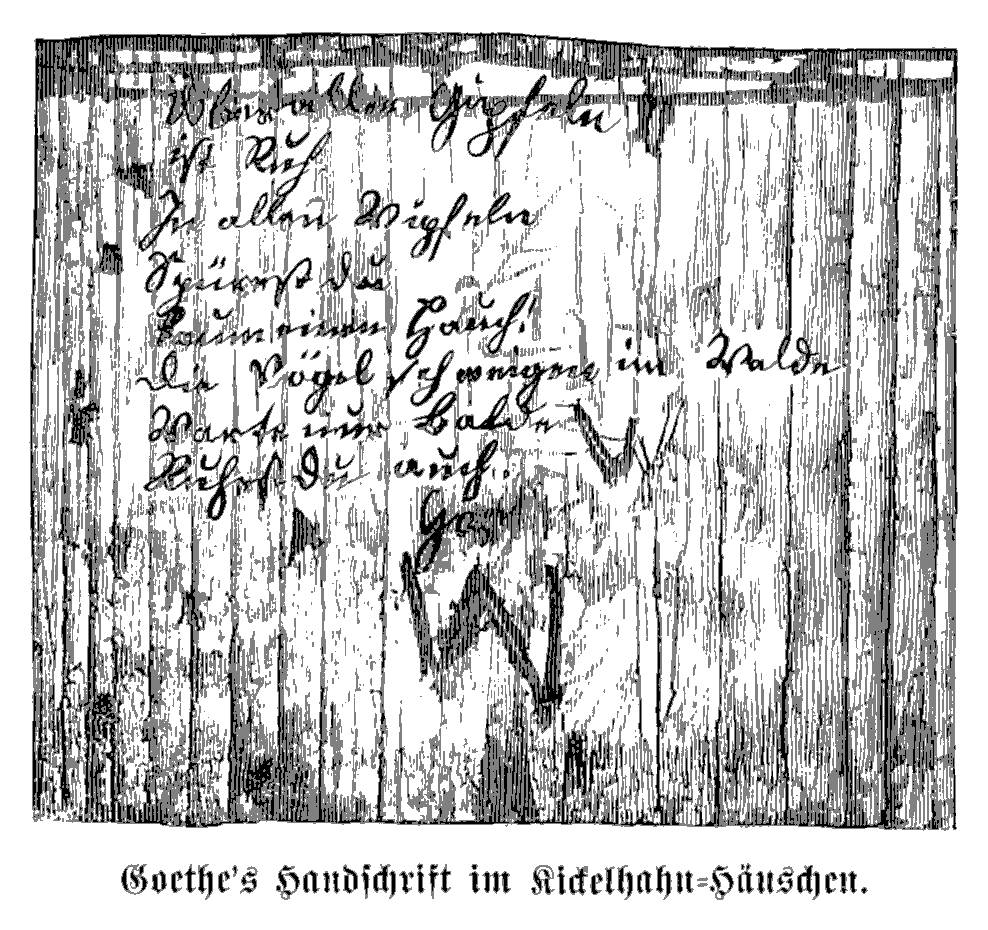 Über allen Gipfeln
ist Ruh
In allen Wipfeln
Spürest du
kaum einen Hauch!
die Vögel schweigen im Walde
Warte nur Balde
W
Ruhest Du auch.
W
Goethe's Handschrift im Kickelhahn-Häuschen.